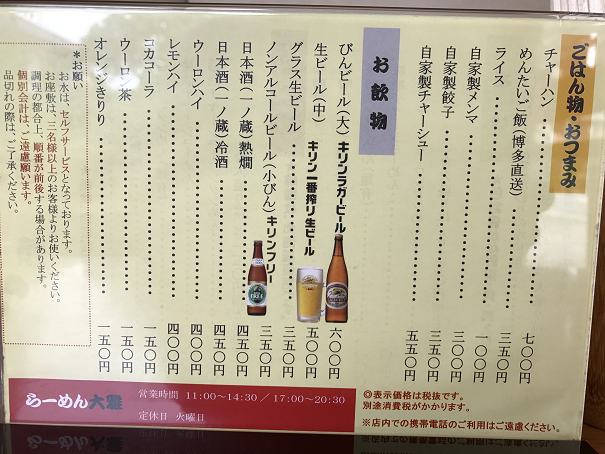 ごはん物・おつまみ
チャーハン…………七〇〇円
めんたいご飯(博多直送)…三五〇円
ライス…………一五〇円
自家製メンマ…………一〇〇円
自家製餃子…………三〇〇円
自家製チャーシュー…………五五〇円
お飲物
びんビール(大)キリンラガービール 六〇〇円
生ビール(中)キリン一番搾り生ビール 五〇〇円
グラス生ビール…………三五〇円
ノンアルコールビール(小びん)キリンフリー 三五〇円
日本酒(一ノ蔵)熱燗…………四五〇円
日本酒(一ノ蔵)冷酒…………四五〇円
ウーロンハイ…………四〇〇円
レモンハイ…………四〇〇円
コカコーラ…………一五〇円
ウーロン茶…………一五〇円
オレンジきりり…………一五〇円
*お願い
お水は、セルフサービスとなっております。
お座敷は、三名様以上のお客様よりお使いください。
調理の都合上、順番が前後する場合があります。
個別会計は、ご遠慮願います。
品切れの際は、ご了承ください。
らーめん大雅
営業時間 11:00〜14:30/17:00〜20:30
定休日 火曜日
◎表示価格は税抜です。
別途消費税がかかります。
※店内での携帯電話のご利用はご遠慮ください。